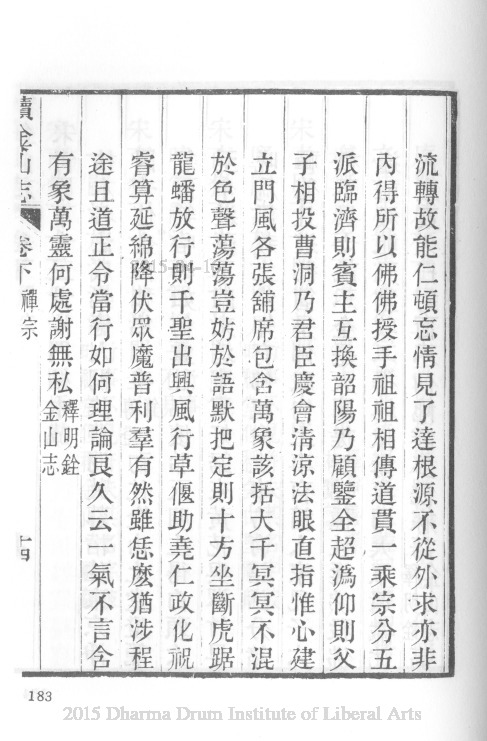 流轉故能仁頓忘情見了達根源不從外求亦非
內得所以佛佛授手祖祖相傳道貫一乘宗分五
派臨濟則賓主互換韶陽乃顧鑒全超溈仰則父
子相投曹洞乃君臣慶會清涼法眼直指惟心建
立門風各張舖席包含萬象該括大千冥冥不混
於色聲蕩蕩豈妨於語默把定則十方坐斷虎踞
龍蟠放行則千聖出興風行草偃助堯仁政化祝
睿算延綿降伏眾魔普利羣有然雖恁麼猶涉程
途且道正令當行如何理論良久云一氣不言含
有象萬靈何處謝無私 釋明銓
金山志
續金山志 卷下 禪宗 十四
183
2015 Dharma Drum Institute of Liberal Arts